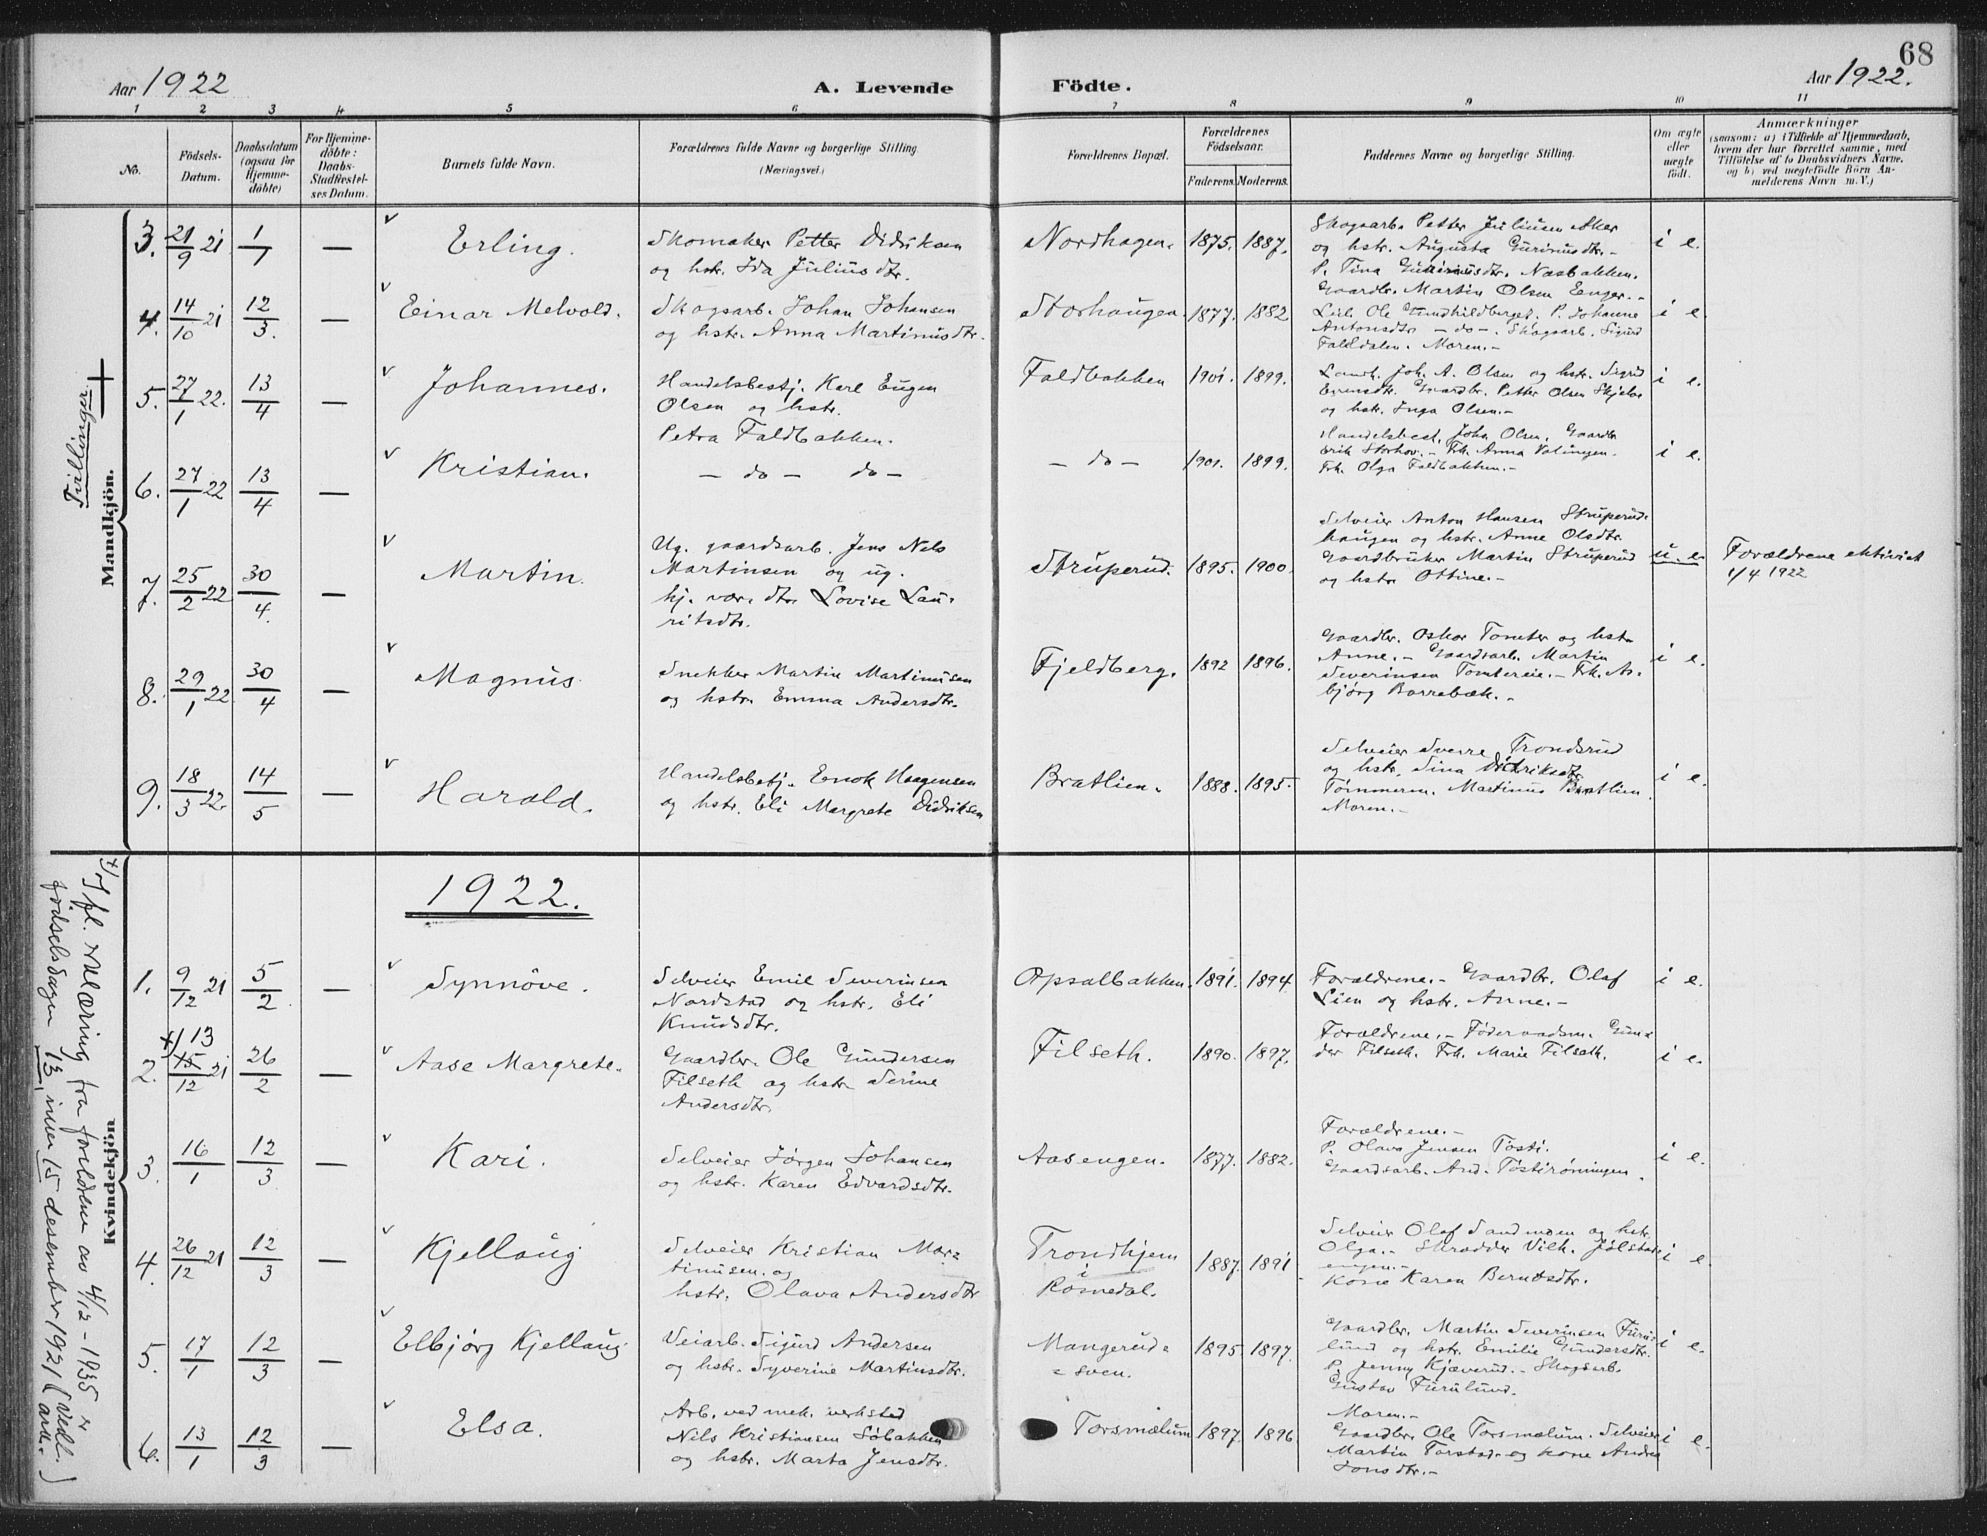 68
Aar 1922
A. Levende Födte.
Aar 1922.
1 2 3 4 5 6 7 8 9 10 11
No.
Födsels-Datum.
Daabsdatum (ogsaa for Hjemmedöbte)
For Hjemmedöbte: Daabs-Stadfæstelses Datum.
Barnets fulde Navn.
Forældrenes fulde Navne og borgerlige Stilling. (Næringsvei.)
Forældrenes Bopæl.
Forældrenes Födselsaar.
Faderens. Moderens.
Faddernes Navne og borgerlige Stilling.
Om ægte eller uægte födt.
Anmærkninger
(saasom: a) i Tilfælde af Hjemmedaab, hvem der har forrettet samme, med Tilföielse af to Daabsvidners Navne. og b) ved uægtefödte Börn Anmelderens Navn m. V.)
Mandkjön.
Tvillinger.
3. 21/9 21 1/1 — Erling.
Skomaker Petter Didriksen
og hstr. Ida Juliusdtr.
Nordhagen. 1875. 1887.
Skogsarb. Petter Juliusen Aker
og hstr. Augusta Gurinusdtr. –
P. Tina Gurinusdtr. Næsbakken.
i e.
4. 14/10 21 12/3. — Einar Melvold.
Skogsarb. Johan Johansen
og hstr. Anna Martinusdtr.
Storhaugen. 1877. 1882
Gaardbr. Martin Olsen Enger. –
P. Johanne
Antonsdtr — do —. Skogsarb. Sigurd
Falldalen. Moren. –
i e.
5. 27/1 22. 13/4 — Johannes.
Handelsbestj. Karl Eugen
Olsen og hstr.
Petra Faldbakken.
Faldbakken 1901. 1899.
Landh. Joh. A. Olsen og hstr. Sigrid
Evensdtr. Gaardbr. Petter Olsen
og hstr. Inga Olsen. –
i e.
6. 27/1 22 13/4 — Kristian.
— do — do —
— do — 1901. 1899.
Handelsbest. John Olsen. Gaardbr
Erik Storhov. – Frk. Anna Valingen.
Frk. Olga Faldbakken. –
i e.
7. 25/2 22 30/4. — Martin.
Ug. gaardsarb. Jens Nils
Martinsen og ug.
hj. vær. dtr. Lovise Lau-
ritsdtr.
Struperud. 1895. 1900.
Selveier Anton Hansen Struperud-
haugen og hstr. Anne Olsdtr.
Gaardbruker Martin Struperud
og hstr Ottine. –
u. e.
Forældrene ekteviet
1/4 1922
8. 29/1 22. 30/4 — Magnus
Snekker Martin Martinusen
og hstr. Emma Andersdtr.
Fjeldberg. 1892 1896.
Gaardbr. Oskar Tomter og hstr
Anne. – Gaardsarb. Martin
Severinsen Tomtereie. – Frk. As-
bjørg Borrebæk. –
i e.
9. 18/3 22. 14/5 — Harald.
Handelsbetj. Enok Haagensen
og hstr. Eli Margrete Didriksen
Bratlien. 1888. 1895.
Selveier Sverre Trondsrud
og hstr. Sina Didriksdtr
Tømmerm. Martinus Bratlien.
Moren. –
i e.
1922.
Kvindekjön
1. 9/12 21 5/2 — Synnöve.
Selveier Emil Severinsen
Nordstad og hstr. Eli
Knudsdtr.
Opsalbakken. 1891. 1894
Forældrene. – Gaardbr. Olaf
Lien og hstr. Anne. –
i e.
x) 13
2. 15/12 21 26/2 — Aase Margrete.
Gaardbr. Ole Gundersen
Filseth og hstr Serine
Andersdtr.
Filseth. 1890. 1897.
Forældrene. – Føderaadsm. Gun-
der Filseth. Frk. Marie Filseth.
i e.
3. 16/1 12/3 — Kari.
Selveier Jørgen Johansen
og hstr. Karen Edvardsdtr.
Aasengen. 1877. 1882.
Forældrene. –
P. Olava Jensen Tosti.
Gaardsarb. And. Tostirøningen.
i e.
4. 26/12 21 12/3 — Kjellaug
Selveier Kristian Mar-
tinusen. og
hstr. Olava Andersdtr
Trondhjem
i
Romedal.
1887. 1891.
Selveier Olaf Sandmoen og hstr.
Olga. – Skrædder Vilh. Jølstad-
engen. –
Kone Karen Berntsdtr.
i e.
5. 17/1 12/3 — Elbjørg Kjellaug
Veiarb. Sigurd Andersen
og hstr. Syverine Martinsdtr.
Mangerud-
sven. 1895. 1897.
Gaardbr. Martin Severinsen Furu-
lund og hstr. Emilie Gundersdtr.
P. Jenny Kjæverud. – Skogsarb.
Gustav Furulund.
i e.
6. 13/1 12/3 — Elsa.
Arb. ved mek. verksted
Nils Kristiansen Söbakken
og hstr. Marta Jensdtr.
Torsmælum 1897. 1896
Moren. –
Gaardbr. Ole Torsmælum. Selveier
Martin Torstad. og kone Andrea
Jonsdtr. –
i e.
x) Ifl. erklæring fra foreldrene av 4/12 – 1935 er
fødselsdagen 13, ikke 15 desember 1921 (Vedl.
ark.)